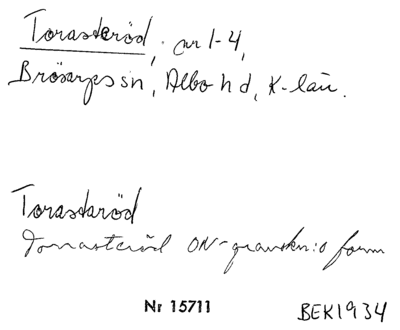 Torasteröd, nr 1-4,
Brösarps sn, Albo hd, K-län.
Torastaröd
Torrasteröd ON-granskn:s form
Nr 15711
BEK1934